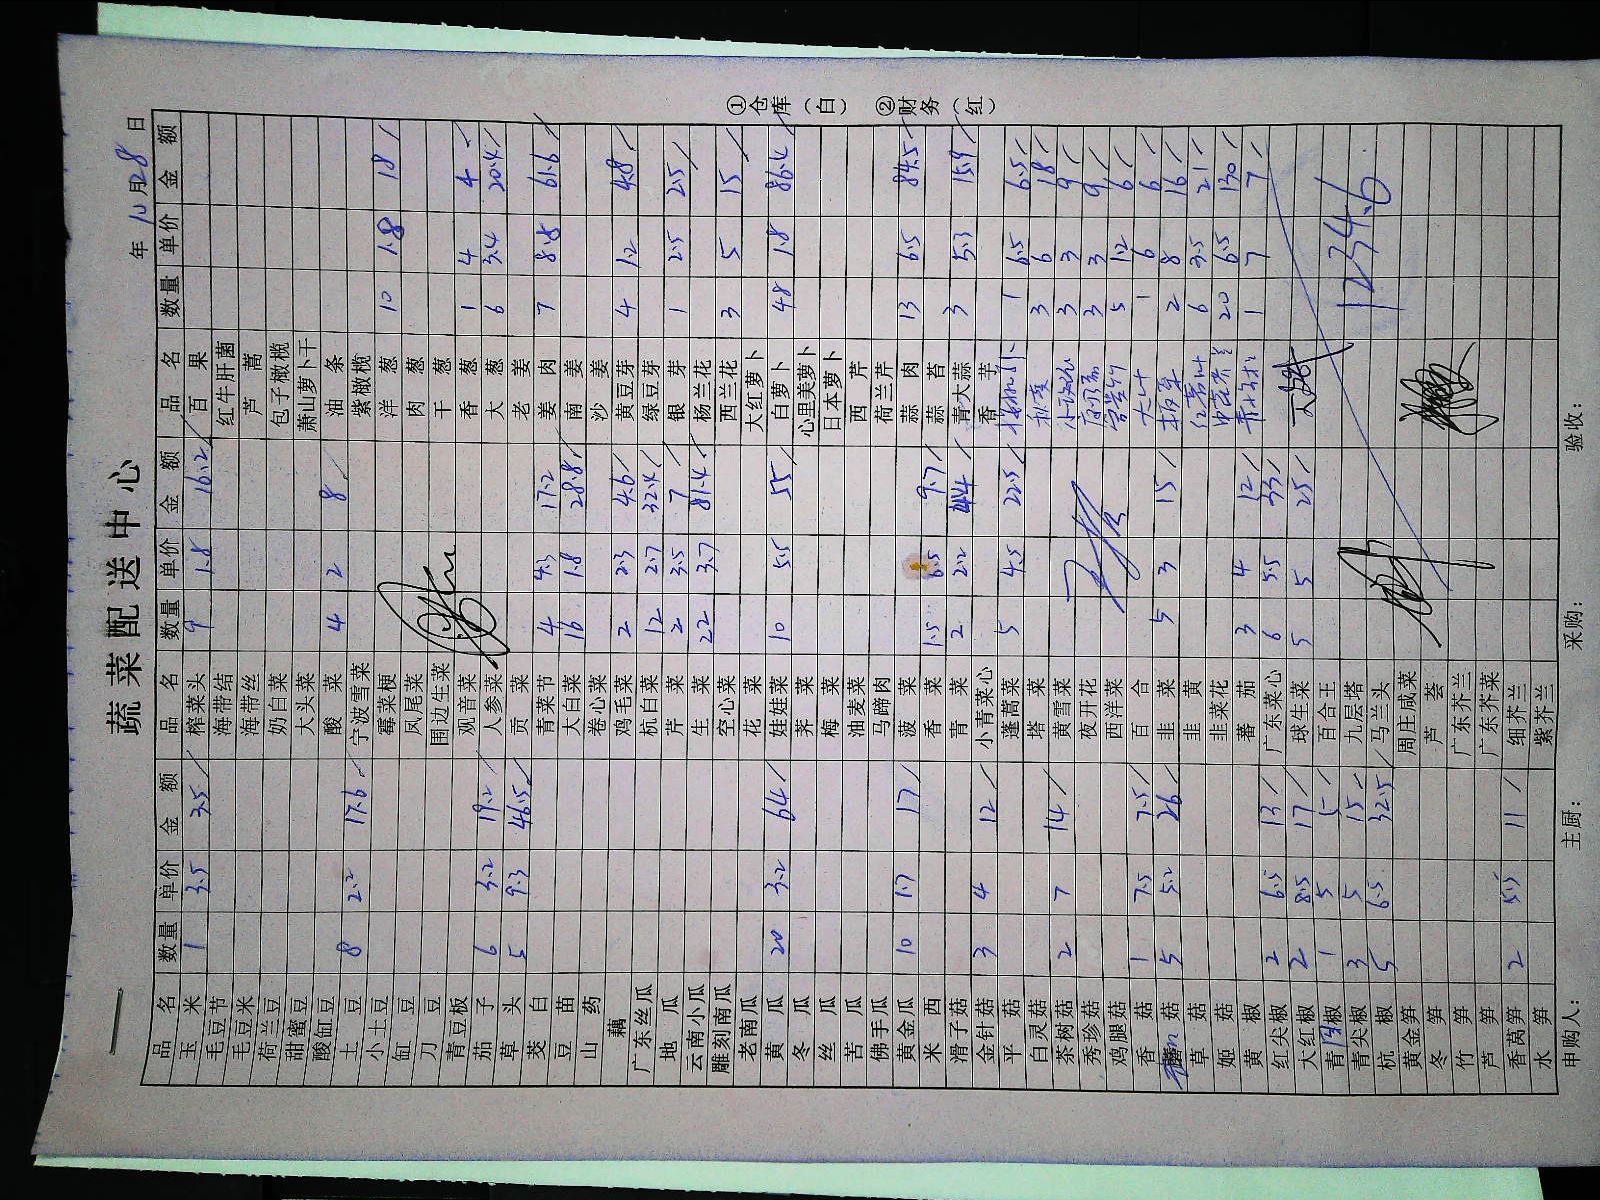 蔬菜配送中心
年 10月28日
品名 数量 单价 金额 品名 数量 单价 金额 品名 数量 单价 金额
玉米 1 3.5 3.5 榨菜头 9 1.8 16.2 百果
毛豆节 海带结 红牛肝菌
毛豆米 海带丝 芦蒿
荷兰豆 奶白菜 包子橄榄
甜蜜豆 大头菜 萧山萝卜干
酸缸豆 酸菜 4 2 8 油条
土豆 8 2.2 17.6 宁波雪菜 紫橄榄
小土豆 霉菜梗 洋葱 10 1.8 18
缸豆 凤尾菜 肉葱
刀豆 围边生菜 干葱
青豆板 观音菜 香葱 1 4 4
茄子 6 3.2 19.2 人参菜 大葱 6 3.4 20.4
草头 5 9.3 46.5 贡菜 老姜
茭白 青菜节 4 4.3 17.2 姜肉 7 8.8 61.6
豆苗 大白菜 16 1.8 28.8 南姜
山药 卷心菜 沙姜
藕 鸡毛菜 2 2.3 4.6 黄豆芽 4 1.2 4.8
广东丝瓜 杭白菜 12 2.7 32.4 绿豆芽
地瓜 芹菜 2 3.5 7 银芽 1 2.5 2.5
云南小瓜 生菜 22 3.7 81.4 杨兰花
雕刻南瓜 空心菜 西兰花 3 5 15
老南瓜 花菜 大红萝卜
黄瓜 20 3.2 64 娃娃菜 10 5.5 55 白萝卜 48 1.8 86.4
冬瓜 荠菜 心里美萝卜
丝瓜 梅菜 日本萝卜
苦瓜 油麦菜 西芹
佛手瓜 马蹄肉 荷兰芹
黄金瓜 10 1.7 17 菠菜 蒜肉 13 6.5 84.5
米西 香菜 1.5 6.5 9.7 蒜苔
滑子菇 青菜 2 2.2 4.4 青大蒜 3 5.3 15.9
金针菇 3 4 12 小青菜心 香芋
平菇 蓬蒿菜 5 4.5 22.5 1 6.5 6.5
白灵菇 塔菜 3 6 18
茶树菇 2 7 14 黄雪菜 3 3 9
秀珍菇 夜开花 3 3 9
鸡腿菇 西洋菜 5 1.2 6
香菇 1 7.5 7.5 百合 1 6 6
菇 5 5.2 26 韭菜 5 3 15 2 8 16
草菇 韭黄 6 3.5 21
姬菇 韭菜花 20 6.5 130
黄椒 蕃茄 3 4 12 1 7 7
红尖椒 2 6.5 13 广东菜心 6 5.5 33
大红椒 2 8.5 17 球生菜 5 5 25
青椒 1 5 5 百合王
青尖椒 3 5 15 九层塔
杭椒 5 6.5 32.5 马兰头 1234.6
黄金笋 周庄咸菜
冬笋 芦荟
竹笋 广东芥兰
芦笋 广东芥菜
香莴笋 2 5.5 11 细芥兰
水笋 紫芥兰
申购人： 主厨： 采购： 验收：
①仓库（白） ②财务（红）